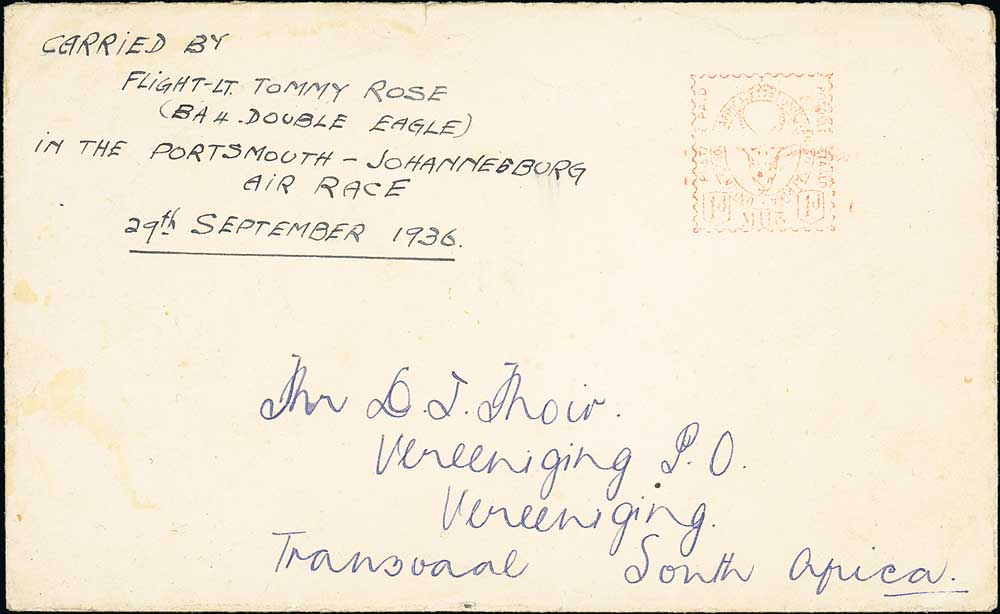 CARRIED BY
FLIGHT-LT. TOMMY ROSE
(BA4. DOUBLE EAGLE)
IN THE PORTSMOUTH - JOHANNESBURG
AIR RACE
29th SEPTEMBER 1936.
1d 1d
D. J.
Vereeniging P.O.
Vereeniging.
Transvaal South Africa.